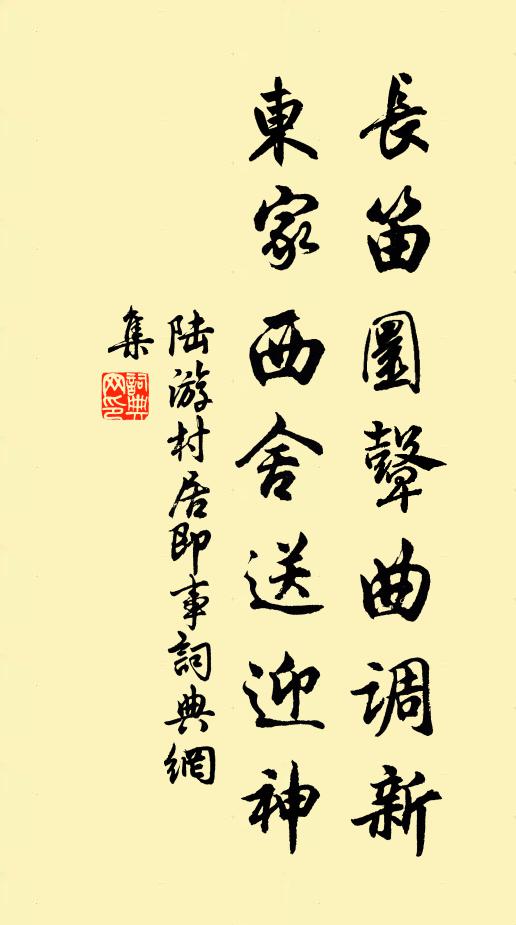 長笛圓鼙曲调新
東家西舍送迎神
陆游村居即事詞典網
集
詞典
网印